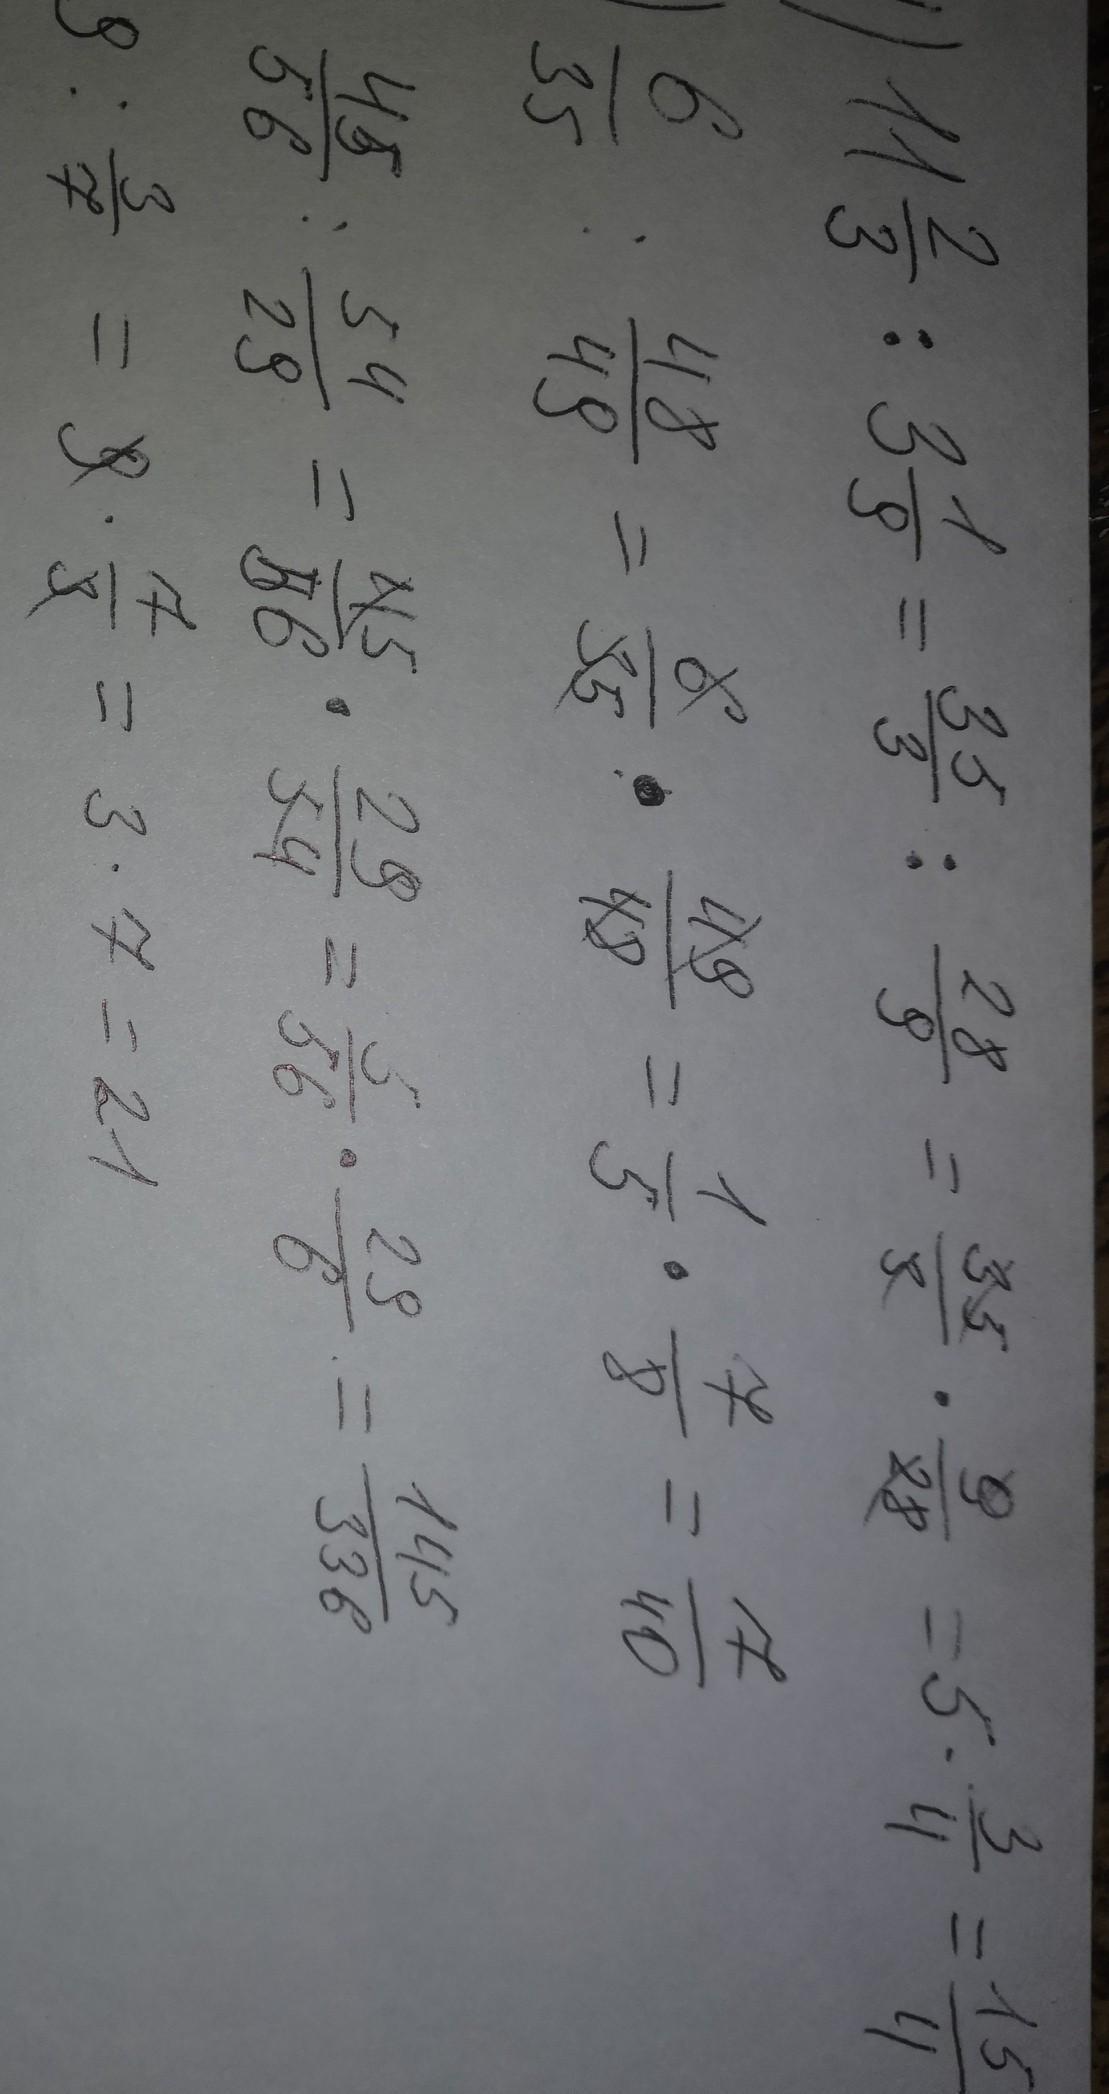 11 2/3 : 3 1/9 = 35/3 : 28/9 = 35/3 · 9/28 = 5 · 3/4 = 15/4
6/35 : 48/49 = 6/35 · 49/48 = 1/5 · 7/8 = 7/40
45/56 : 54/29 = 45/56 · 29/54 = 5/56 · 29/6 = 145/336
9 : 3/7 = 9 · 7/3 = 3 · 7 = 21